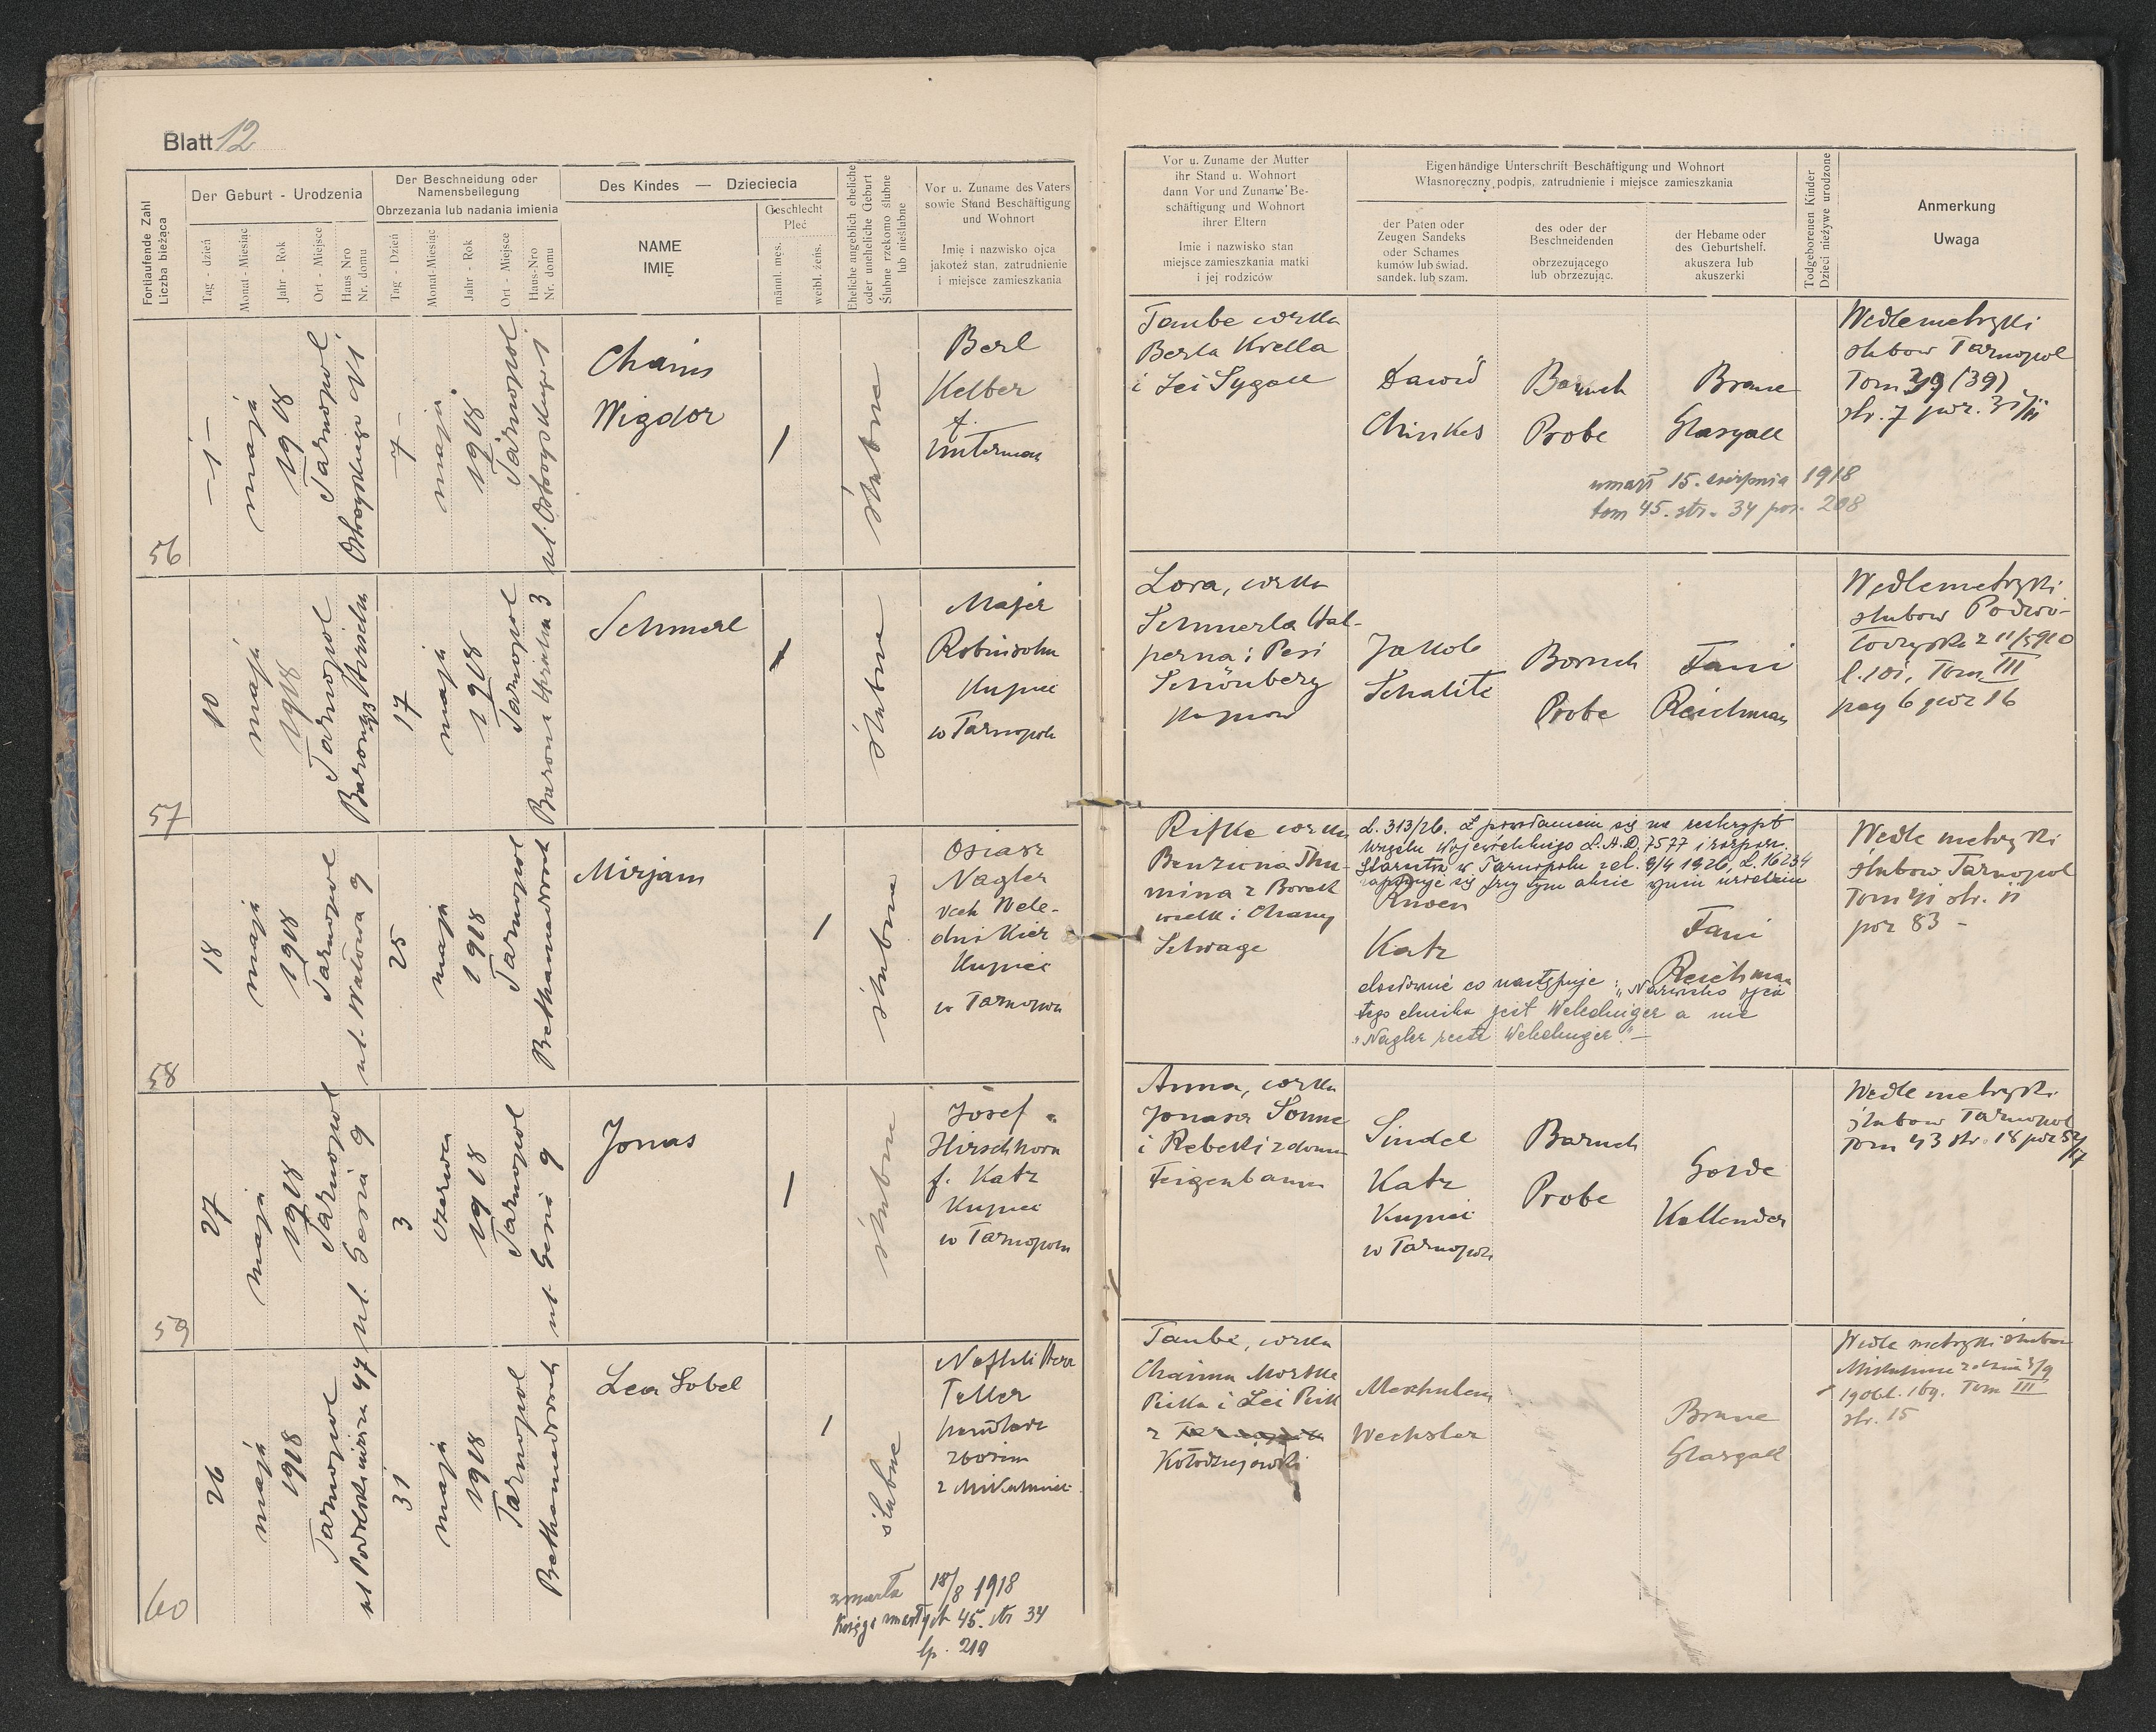 Blatt 12
Fortlaufende Zahl
Liczba bieżąca
Der Geburt - Urodzenia
Tag - dzień
Monat - Miesiąc
Jahr - Rok
Ort - Miejsce
Haus Nro
Nr. domu
Der Beschneidung oder
Namensbeilegung
Obrzezania lub nadania imienia
Tag - Dzień
Monat-Miesiąc
Jahr - Rok
Ort - Miejsce
Haus-Nro
Nr. domu
Des Kindes — Dzieciecia
NAME
IMIĘ
Geschlecht
Płeć
männl. męs.
weibl. żeńs.
Eheliche angeblich eheliche
oder uneheliche Geburt
Ślubne rzekomo ślubne
lub nieślubne
Vor u. Zuname des Vaters
sowie Stand Beschäftigung
und Wohnort
Imię i nazwisko ojca
jakoteż stan, zatrudnienie
i miejsce zamieszkania
Vor u. Zuname der Mutter
ihr Stand u. Wohnort
dann Vor und Zuname Be-
schäftigung und Wohnort
ihrer Eltern
Imie i nazwisko stan
miejsce zamieszkania matki
i jej rodziców
Eigenhändige Unterschrift Beschäftigung und Wohnort
Własnoręczny podpis, zatrudnienie i miejsce zamieszkania
der Paten oder
Zeugen Sandeks
oder Schames
kumów lub świad.
sandek. lub szam.
des oder der
Beschneidenden
obrzezującego
lub obrzezując.
der Hebame oder
des Geburtshelf.
akuszera lub
akuszerki
Todgeborenen Kinder
Dzieci nieżywe urodzone
Anmerkung
Uwaga
56
- 1 -
maja
1918
Tarnopol
7 -
maja
1918
Tarnopol
Chaim
Wigdor
/
ślubne
Berl
Kelber
f.
Unterman
Taube corka
Berla Krella
i Lei Sygall
Dawid
Chinkes
Baruch
Probe
Brane
Glasgall
umarł 15. sierpnia 1918
tom 45. str. 34 poz. 208
Wedle metryki
slubow Tarnopol
Tom 39 (39)
57
10
maja
1918
Tarnopol
17
maja
1918
Tarnopol
Barona Hirscha 3
Schmerl
/
ślubne
Majer
Robinsohn
Kupiec
w Tarnopolu
Lora, corka
Schmerla Hal-
perna i Pesi
Schönberg
Jakob
Schalite
Boruch
Probe
Fani
Reichman
Wedle metryki
slubow Podwo-
Tom III
pag 6 poz 16
58
18
maja
1918
Tarnopol
ul. Wałowa 9
25
maja
1918
Tarnopol
Bethamidrasch
Mirjam
/
ślubne
Osiasz
Nagler
Kupiec
w Tarnopolu
Rifke corka
Benziona Thu-
mina z Borek
wielk i Chany
Schrage
L. 313/26. Z powołaniem się na reskrypt
Starostwa w Tarnopolu z d. 9/4 1926, L. 16234
Katz
Fani
Reichman
dosłownie co następuje: „Nazwisko ojca
tego dziecka jest Weledniger a nie
„Nagler recte Weledniger". —
Wedle metryki
slubow Tarnopol
Tom 41 str. 11
poz 83 -
59
27
maja
1918
Tarnopol
ul. Gesia 9
3
czerwca
1918
Tarnopol
ul. Gesia 9
Jonas
/
ślubne
Josef
Hirschhorn
f. Katz
Kupiec
w Tarnopolu
Anna, corka
Jonasa Sonne
i Rebeki z domu
Feigenbaum
Sindel
Katz
Kupiec
w Tarnopolu
Baruch
Probe
Golde
Kallender
Wedle metryki
ślubow Tarnopol
Tom 43 str. 18
60
26
maja
1918
Tarnopol
31
maja
1918
Tarnopol
Bethamidrasch
Lea Sobel
/
ślubne
Naftali Herz
Teller
handlarz
zbożem
z Mikuliniec
zmarła 18/8 1918
Księga zmarłych 45. str 34
lp. 219
Taube, corka
Chaima Moszka
Picka i Lei Pick
z
Kołodziejówki
Meschulem
Wechsler
Brane
Glasgall
Wedle metryki slubow
Tom III
str. 15